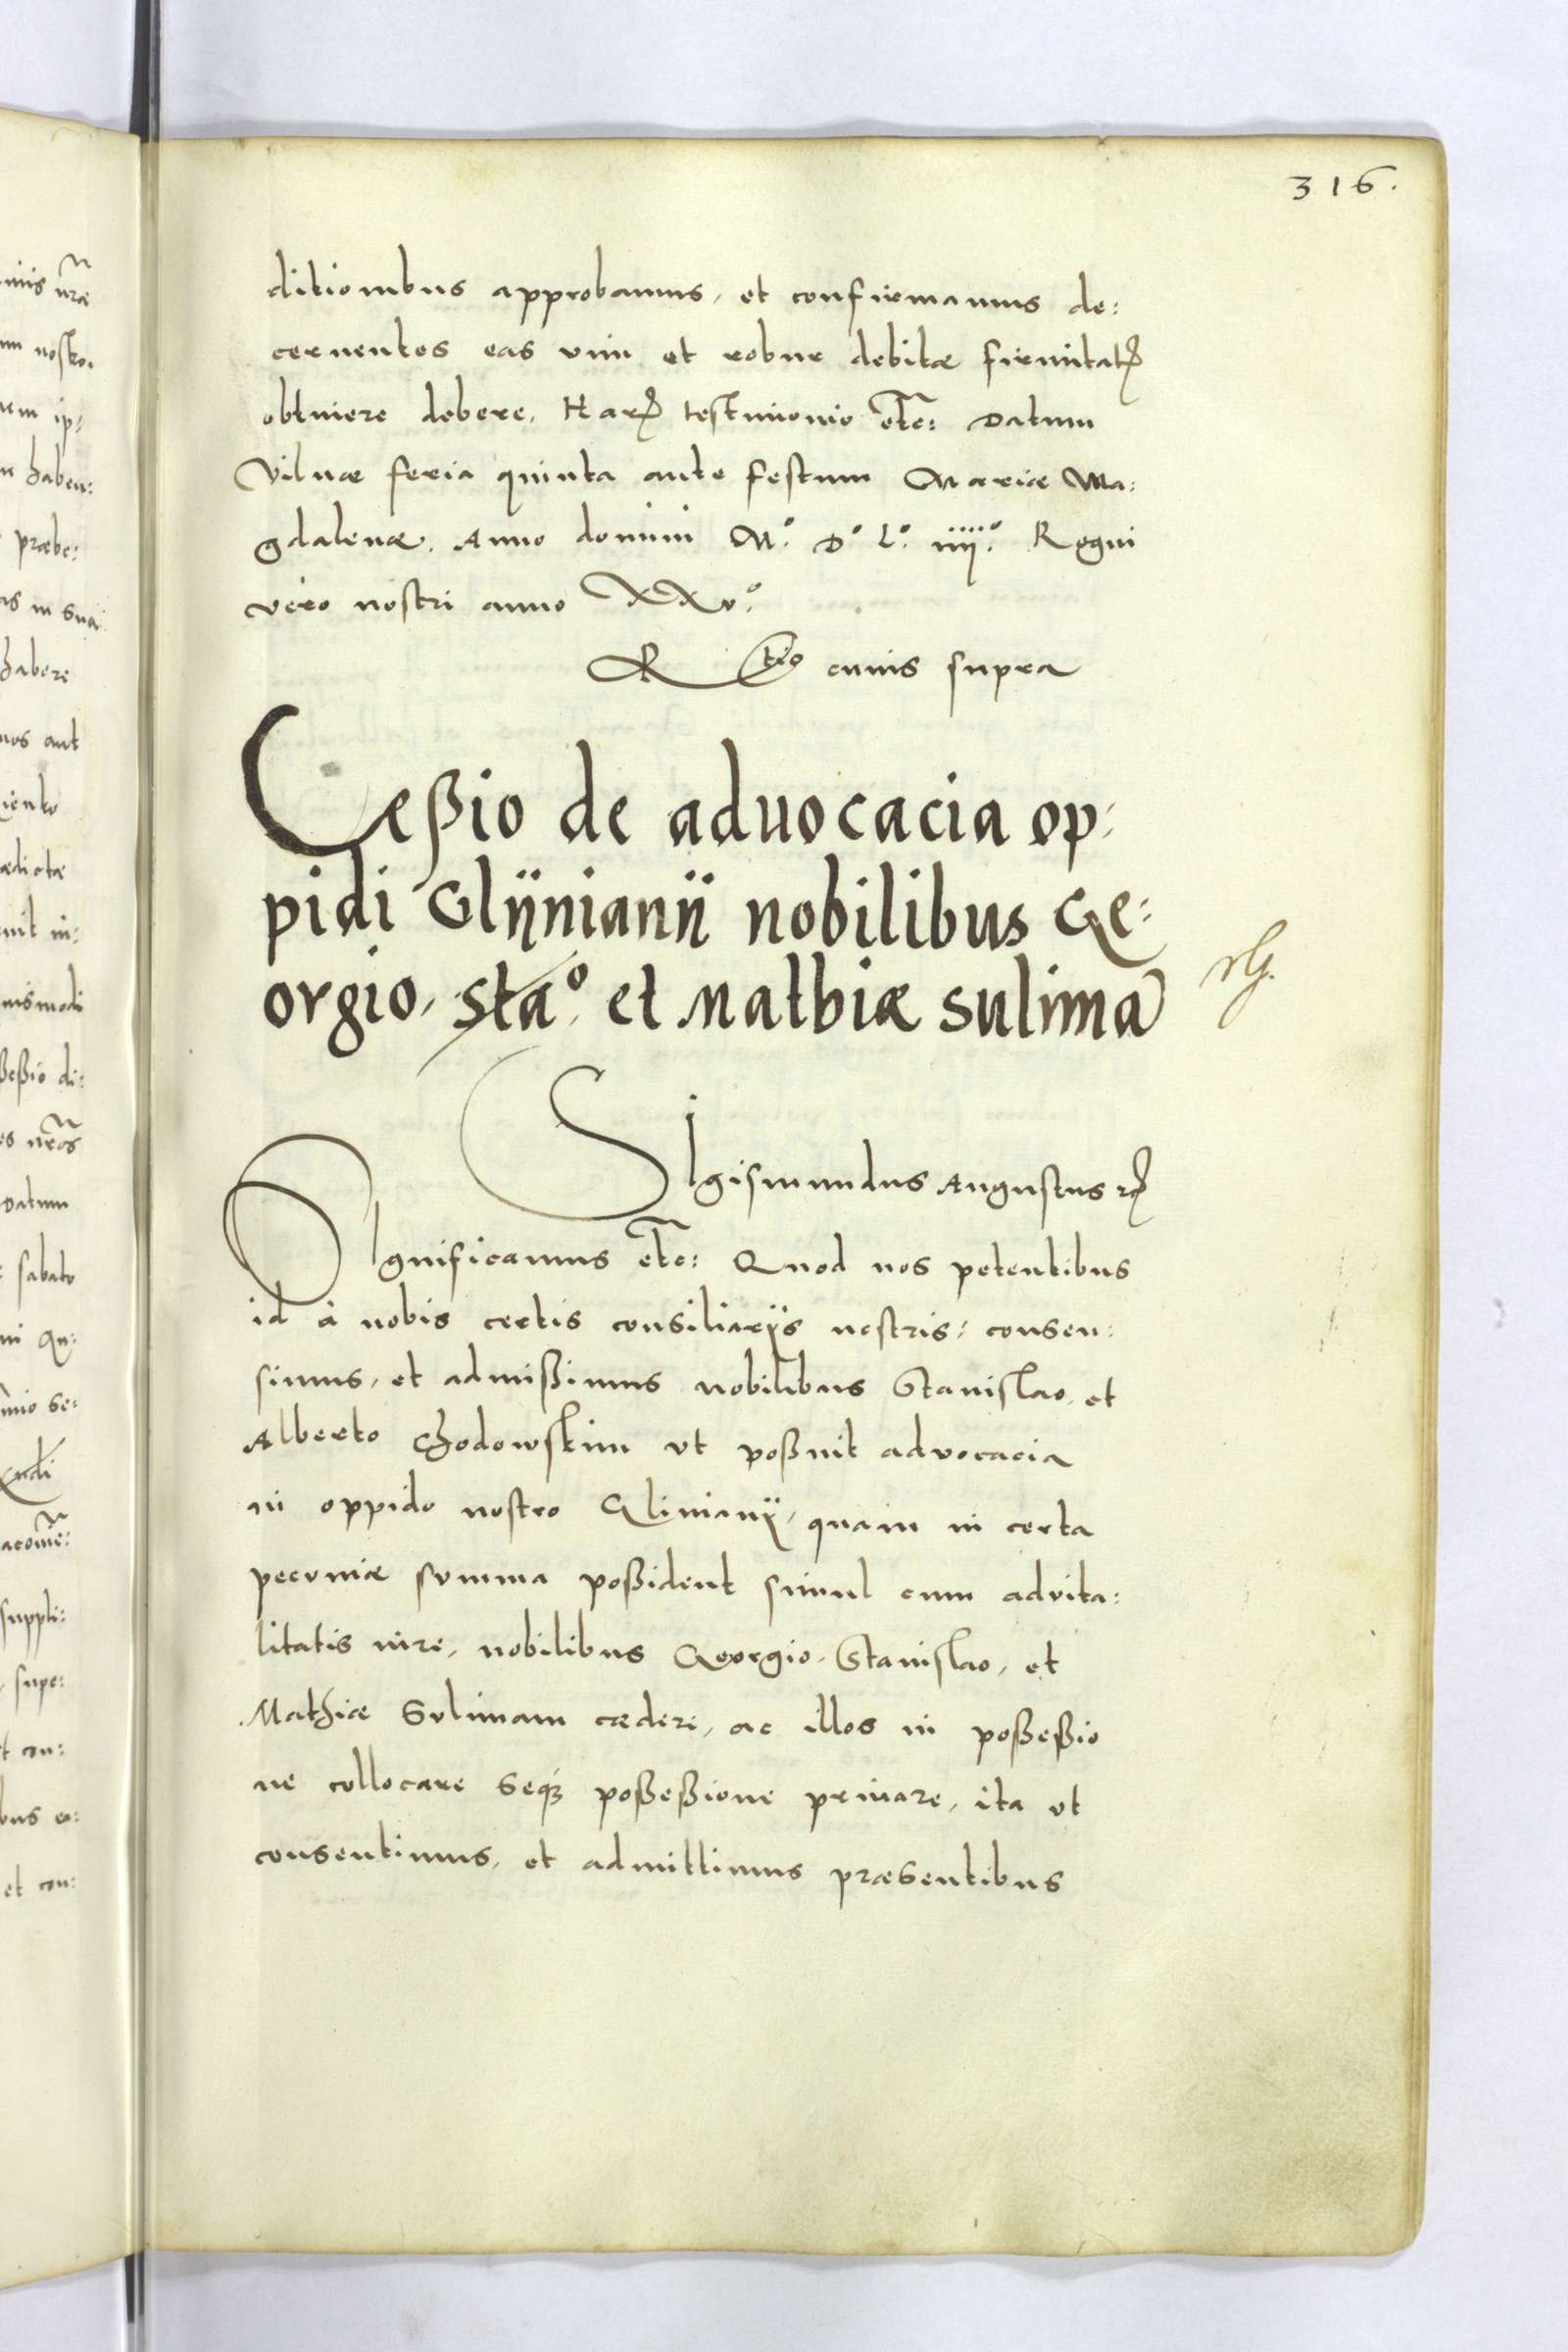 316.
ditionibus approbamus, et confirmamus de:
cernentes eas vim et robur debitæ firmitatꝭ
obtinere debere, Harꝭ testimonio etc: Datum
Vilnæ feria quinta ante festum Mariæ Ma:
gdalenæ. Anno domini Mº. Dº Lº. iiijº. Regni
vero nostri anno XXvº.
Rtio cuius supra
Cæßio de aduocacia op:
pidi Glijnianij nobilibus Ge:
orgio, Staº. et Mathiæ Sulima
Sigismundus Augustus rꝭ
Significamus etc: Quod nos petentibus
id à nobis certis consiliarijs nostris: consen:
simus, et admißimus nobilibus Stanislao, et
Alberto Chodowskim vt poßint advocacia
in oppido nostro Glinianij, quam in certa
pecuniæ summa poßident simul cum advita:
litatis iure, nobilibus Georgio, Stanislao, et
Mathiæ Sulimam cæderi, ac illos in poßeßio
ne collocare seqꝫ poßeßione priuare, ita vt
consentimus, et admittimus præsentibus